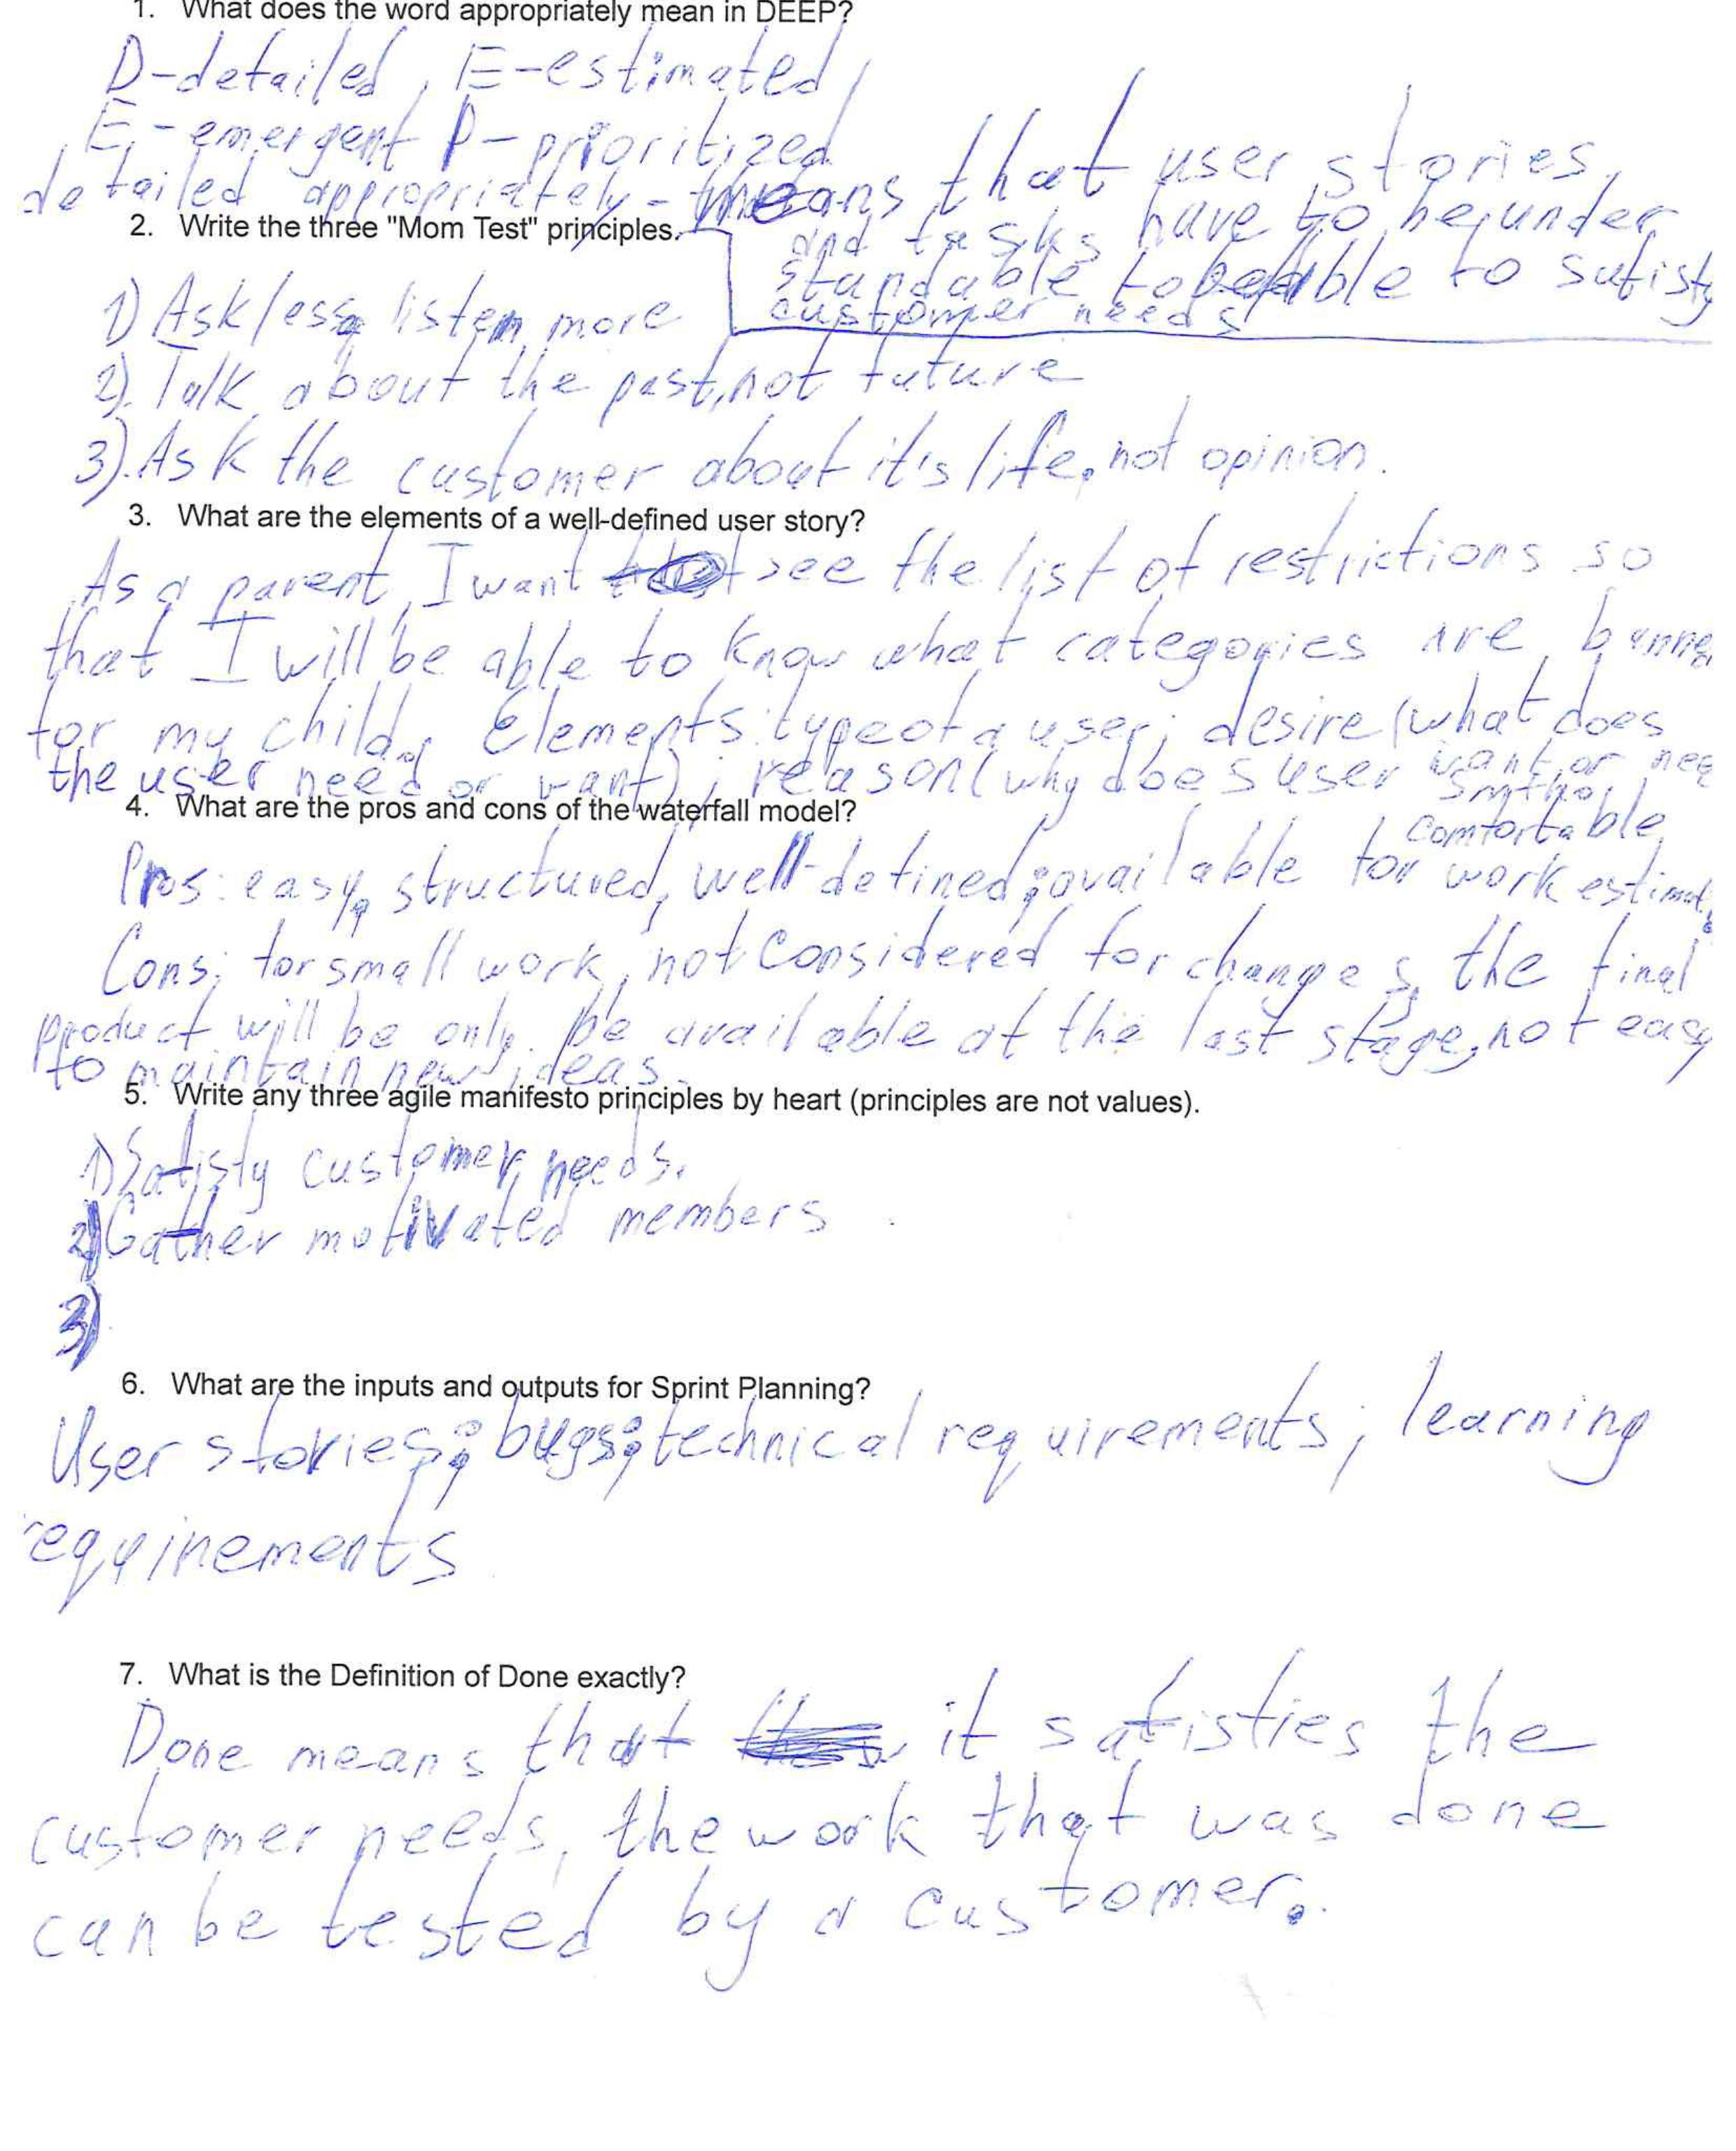 1. What does the word appropriately mean in DEEP?
D-detailed, E-estimated,
E-emergent P-prioritized
detailed appropriately - means that user stories,
and tasks have to be under
standable to be able to satisfy
customer needs
2. Write the three "Mom Test" principles.
1) Ask less, listen more
2). Talk about the past, not future
3). Ask the customer about it's life, not opinion.
3. What are the elements of a well-defined user story?
As a parent, I want to see the list of restrictions so
that I will be able to know what categories are banned
for my child. Elements: type of a user; desire (what does
the user need or want); reason (why does user want or nee
smth).
4. What are the pros and cons of the waterfall model?
Pros: easy, structured, well-defined; available for comfortable
work estimat.
Cons: for small work, not considered for changes, the final
product will be only be available at the last stage, not easy
to maintain new ideas.
5. Write any three agile manifesto principles by heart (principles are not values).
1) Satisfy customer needs.
2) Gather motivated members
3)
6. What are the inputs and outputs for Sprint Planning?
User stories; bugs; technical requirements; learning
requirements
7. What is the Definition of Done exactly?
Done means that it satisfies the
customer needs, the work that was done
can be tested by a customer.